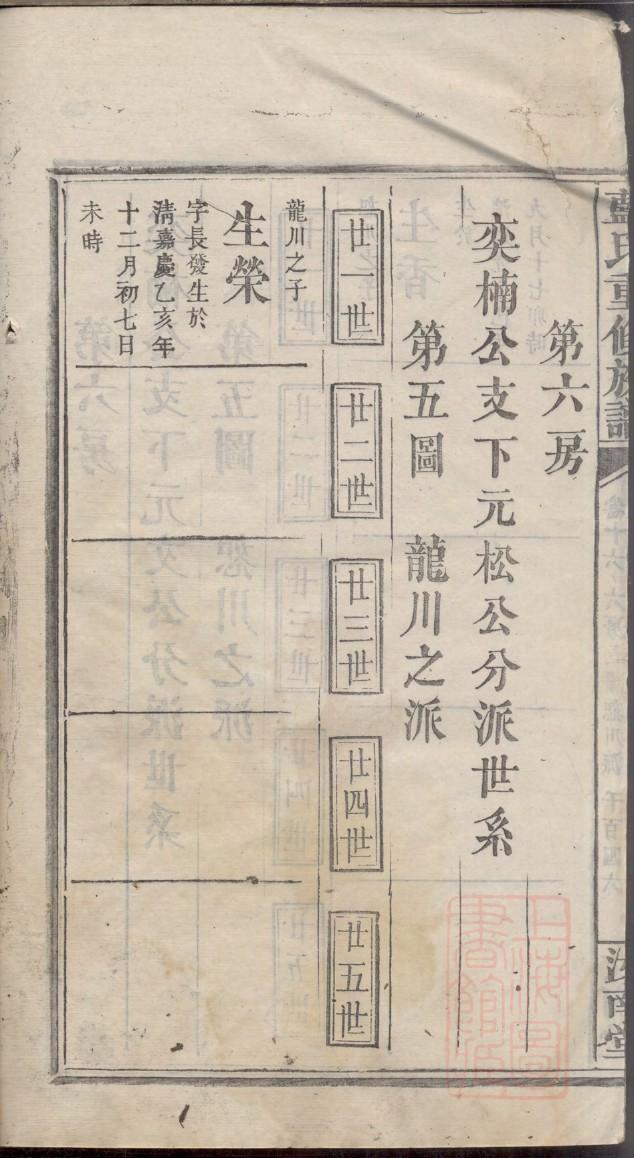 藍氏重修族譜
汝南堂
第六房
奕楠公支下元松公分派世系
第五圖 龍川之派
廿一世
廿二世
廿三世
廿四世
廿五世
龍川之子
生榮
字長發生於
淸嘉慶乙亥年
十二月初七日
未時
上海圖書館藏